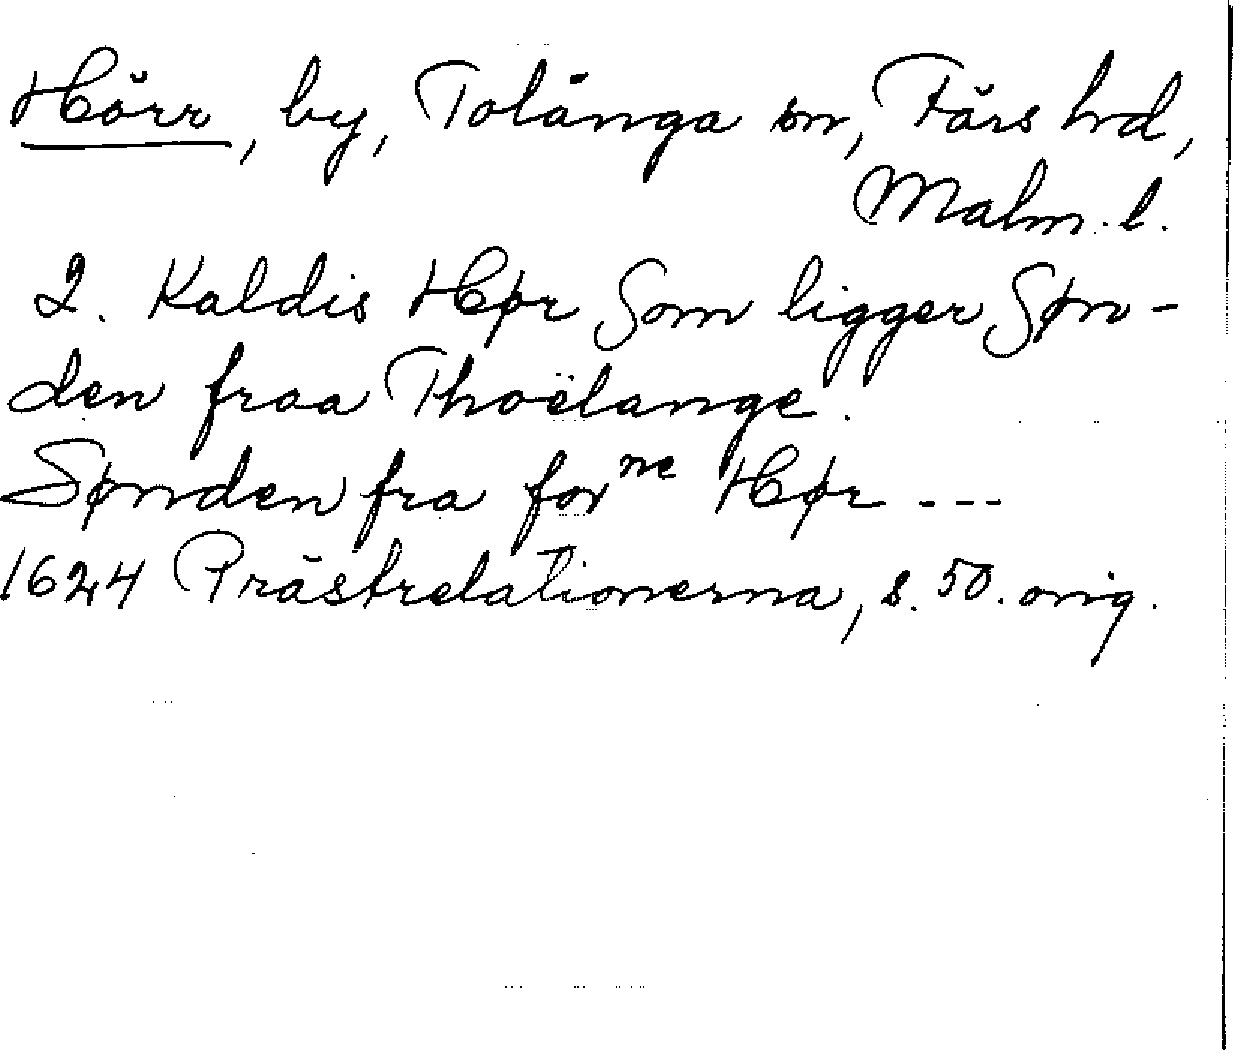 Hörr, by, Tolånga sn, Färs hd,
Malm. l.
2. Kaldis Hør Som ligger Søn-
den fraa Thoëlange.
Sønden fra forne Hør ---
1624 Prästrelationerna, s. 50. orig.